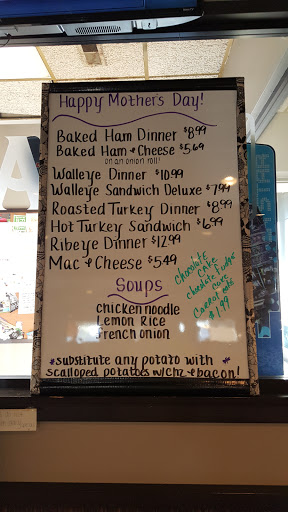 Happy Mother's Day!
Baked Ham Dinner $8.99
Baked Ham & Cheese $5.69
on an onion roll!
Walleye Dinner $10.99
Walleye Sandwich Deluxe $7.99
Roasted Turkey Dinner $8.99
Hot Turkey Sandwich $6.99
Ribeye Dinner $12.99
Mac & Cheese $5.49
Soups
Chicken noodle
Lemon Rice
French onion
chocolate
cake
carrot
cake
$1.99
*substitute any potato with *
scalloped potatoes w/chz & bacon!